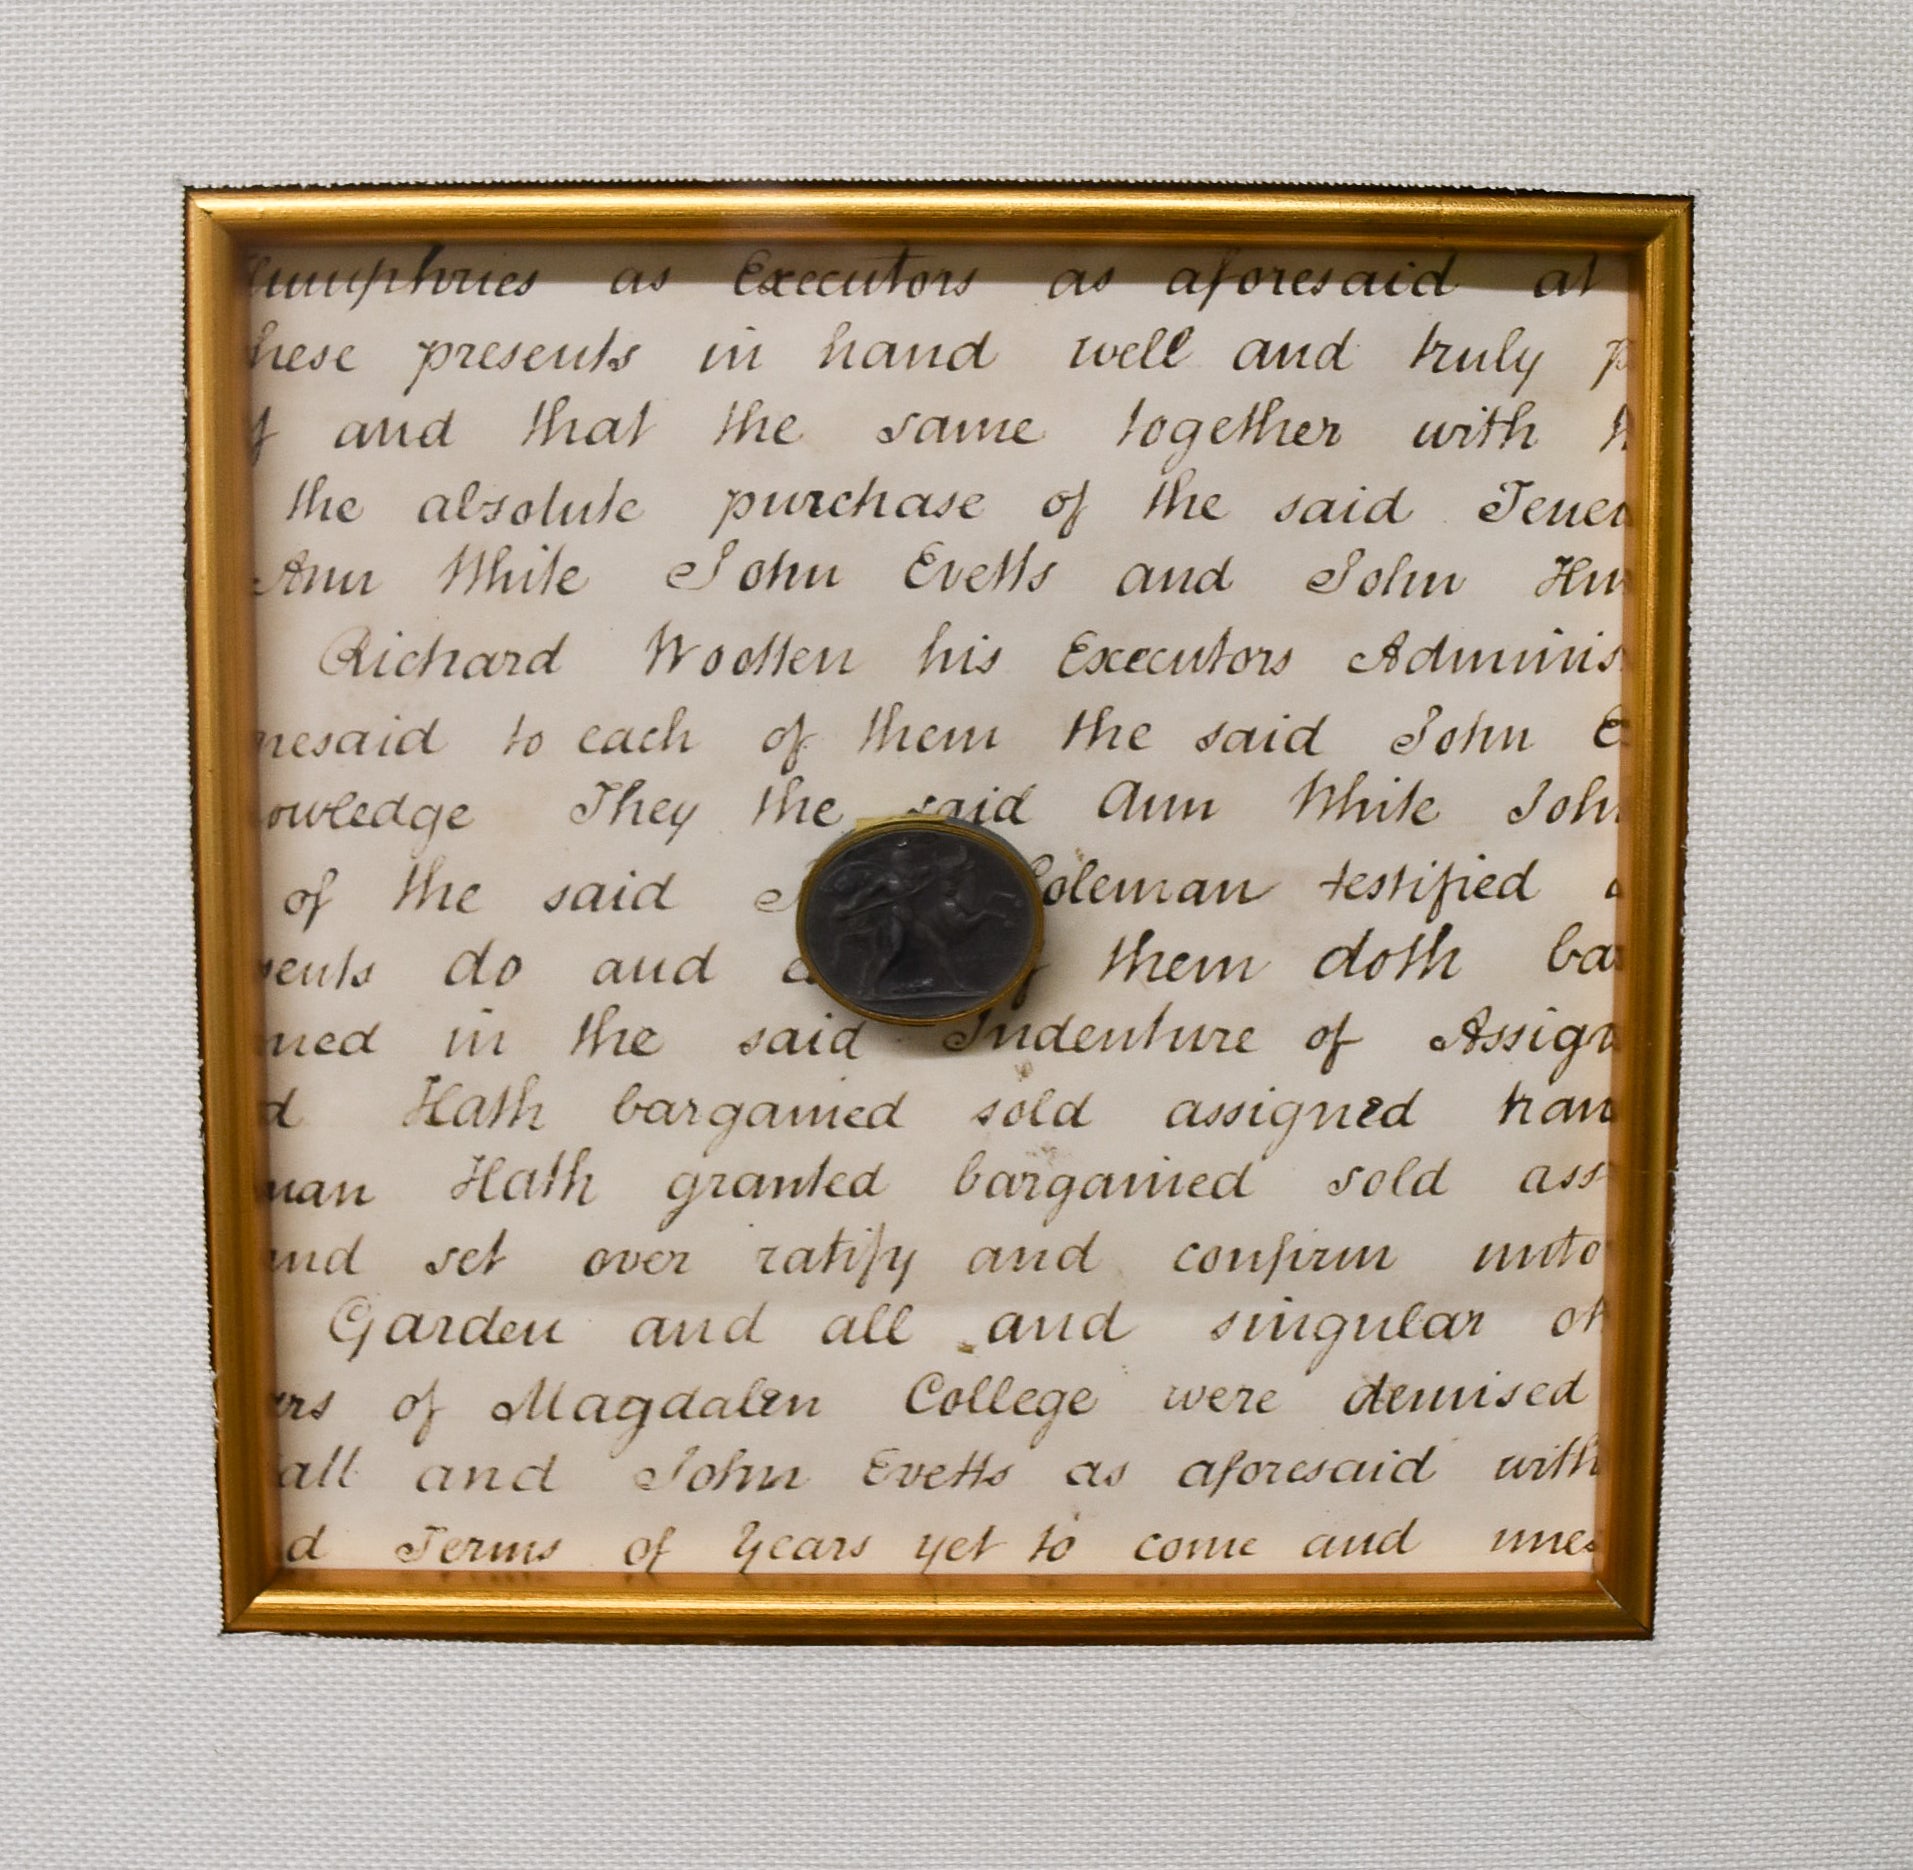 Humphries as Executors as aforesaid at
hese presents in hand well and truly p
and that the same together with
the absolute purchase of the said Tenem
Ann White John Evetts and John Hum
Richard Wootten his Executors Adminis
resaid to each of them the said John E
owledge They the said Ann White John
of the said Coleman testified
sents do and them doth bar
ned in the said Indenture of Assign
d Hath bargained sold assigned tran
man Hath granted bargained sold ass
and set over ratify and confirm unto
Garden and all and singular oth
ars of Magdalen College were demised
all and John Evetts as aforesaid with
d Terms of Years yet to come and unex